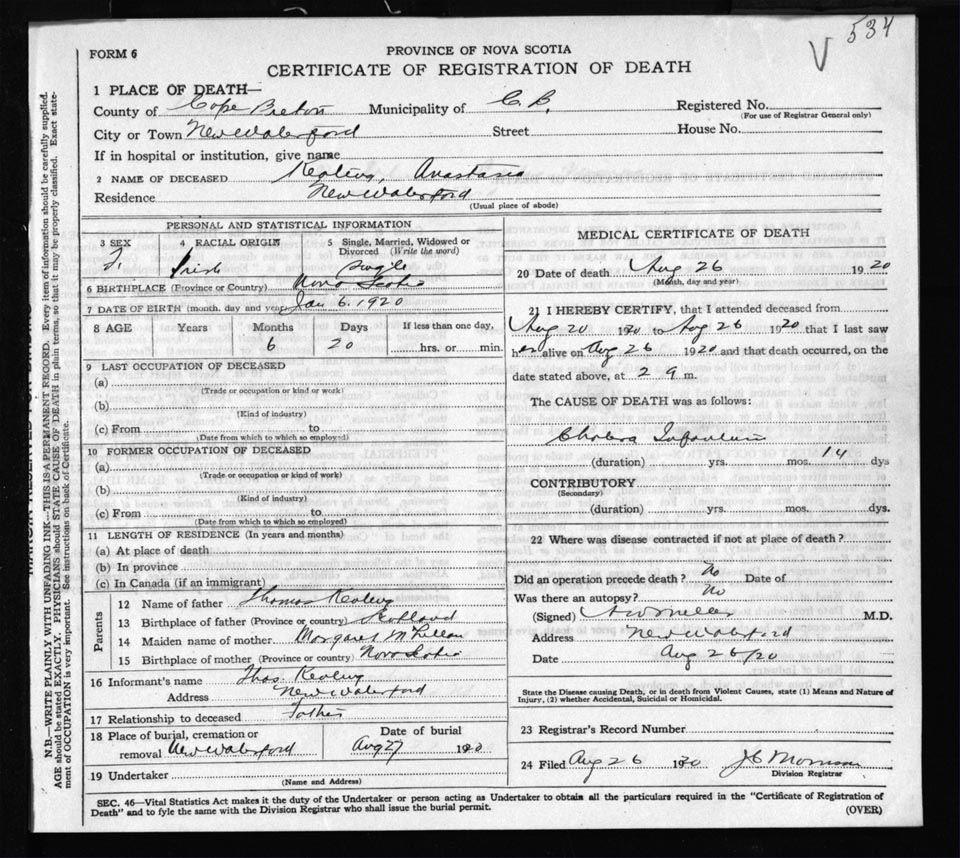 534
V
FORM 6
PROVINCE OF NOVA SCOTIA
CERTIFICATE OF REGISTRATION OF DEATH
1 PLACE OF DEATH—
County of Cape Breton Municipality of C. B. Registered No.
(For use of Registrar General only)
City or Town New Waterford Street House No.
If in hospital or institution, give name
2 NAME OF DECEASED Anastasia
Residence New Waterford
(Usual place of abode)
PERSONAL AND STATISTICAL INFORMATION
3 SEX 4 RACIAL ORIGIN 5 Single, Married, Widowed or Divorced (Write the word)
F. Irish Single
6 BIRTHPLACE (Province or Country) Nova Scotia
7 DATE OF BIRTH (month, day and year) Jan 6. 1920
8 AGE Years Months Days If less than one day,
6 20 hrs. or min.
9 LAST OCCUPATION OF DECEASED
(a)
(Trade or occupation or kind or work)
(b)
(Kind of industry)
(c) From to
(Date from which to which so employed)
10 FORMER OCCUPATION OF DECEASED
(a)
(Trade or occupation or kind of work)
(b)
(Kind of industry)
(c) From to
(Date from which to which so employed)
11 LENGTH OF RESIDENCE (In years and months)
(a) At place of death
(b) In province
(c) In Canada (if an immigrant)
Parents
12 Name of father Thomas
13 Birthplace of father (Province or country) Scotland
14 Maiden name of mother Margaret McLellan
15 Birthplace of mother (Province or country) Nova Scotia
16 Informant's name Thos.
Address New Waterford
17 Relationship to deceased Father
18 Place of burial, cremation or Date of burial
removal New Waterford Aug 27 1920
19 Undertaker
(Name and Address)
MEDICAL CERTIFICATE OF DEATH
20 Date of death Aug 26 1920
(Month, day and year)
21 I HEREBY CERTIFY, that I attended deceased from
Aug 20 1920 to Aug 26 1920 that I last saw
her alive on Aug 26 1920 and that death occurred, on the
date stated above, at 2 a m.
The CAUSE OF DEATH was as follows:
Cholera Infantum
(duration) yrs. mos. 14 dys
CONTRIBUTORY
(Secondary)
(duration) yrs. mos. dys.
22 Where was disease contracted if not at place of death?
Did an operation precede death? No Date of
Was there an autopsy? No
(Signed) M.D.
Address New Waterford
Date Aug 26/20
State the Disease causing Death, or in death from Violent Causes, state (1) Means and Nature of
Injury, (2) whether Accidental, Suicidal or Homicidal.
23 Registrar's Record Number
24 Filed Aug 26 1920 J C Morrison
Division Registrar
SEC. 46—Vital Statistics Act makes it the duty of the Undertaker or person acting as Undertaker to obtain all the particulars required in the "Certificate of Registration of
Death" and to fyle the same with the Division Registrar who shall issue the burial permit. (OVER)
N.B.—WRITE PLAINLY WITH UNFADING INK—THIS IS A PERMANENT RECORD. Every item of information should be carefully supplied.
AGE should be stated EXACTLY. PHYSICIANS should STATE CAUSE OF DEATH in plain terms, so that it may be properly classified. Exact state-
ment of OCCUPATION is very important. See instructions on back of Certificate.